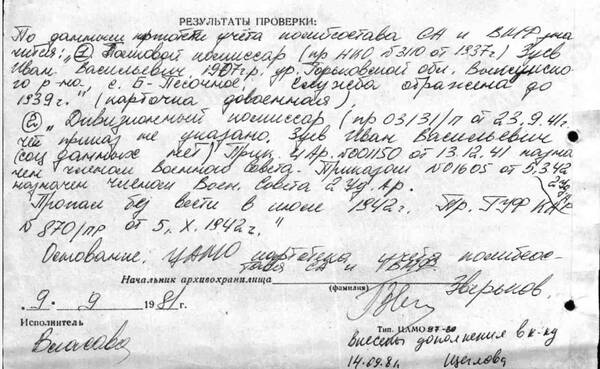 РЕЗУЛЬТАТЫ ПРОВЕРКИ:
По данным картотеки учёта политсостава СА и ВМФ зна-
чится: „① Полковой комиссар (пр НКО №3110 от 1937г) Зуев
Иван Васильевич, 1907г.р. ур. Горьковской обл. Выксунско-
го р-на с. Б-Песочное, служба отражена до
1939г." (карточка довоенная)
② „Дивизионный комиссар (пр 03131/п от 23.9.41г.
чей приказ не указано. Зуев Иван Васильевич
(соц данных нет) Прик. 4Ар. №00150 от 13.12.41 назна
чен членом Военного совета. Приказом №01605 от 5.3.42
назначен членом Воен. Совета 2 Уд. Ар.
2 Уд
"Пропал без вести в июле 1942г. Пр. ГУФ КА
№870/пр от 5.X.1942г."
Основание: ЦАМО картотека учёта политсос-
тава СА и ВМФ.
Начальник архивохранилища
(фамилия)
Зверьков
„9" 9 1981г.
Исполнитель
Власова
Тип. ЦАМО 97-80
Внесены дополнения в к-ку
14.09.81. Щеглова